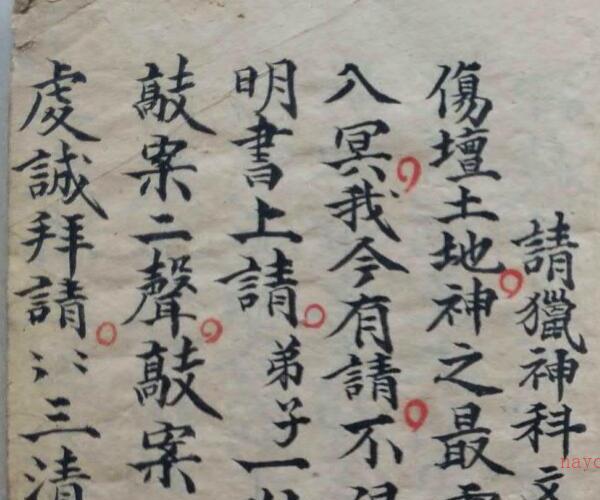 請獵神科
傷壇土地。神之最
八冥。我今有請。不
明書上請。弟子一
敲案二聲。敲案
虔誠拜請。⺀⺀三清
nayc